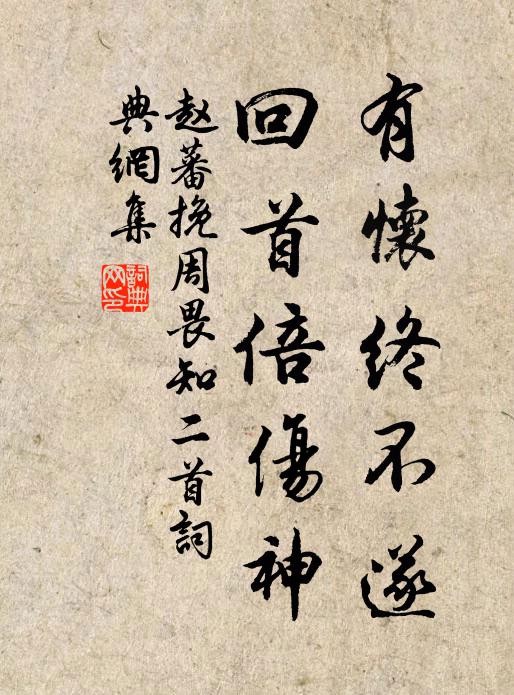 有懷終不遂
回首倍傷神
赵蕃挽周畏知二首詞
典網集
詞典網印